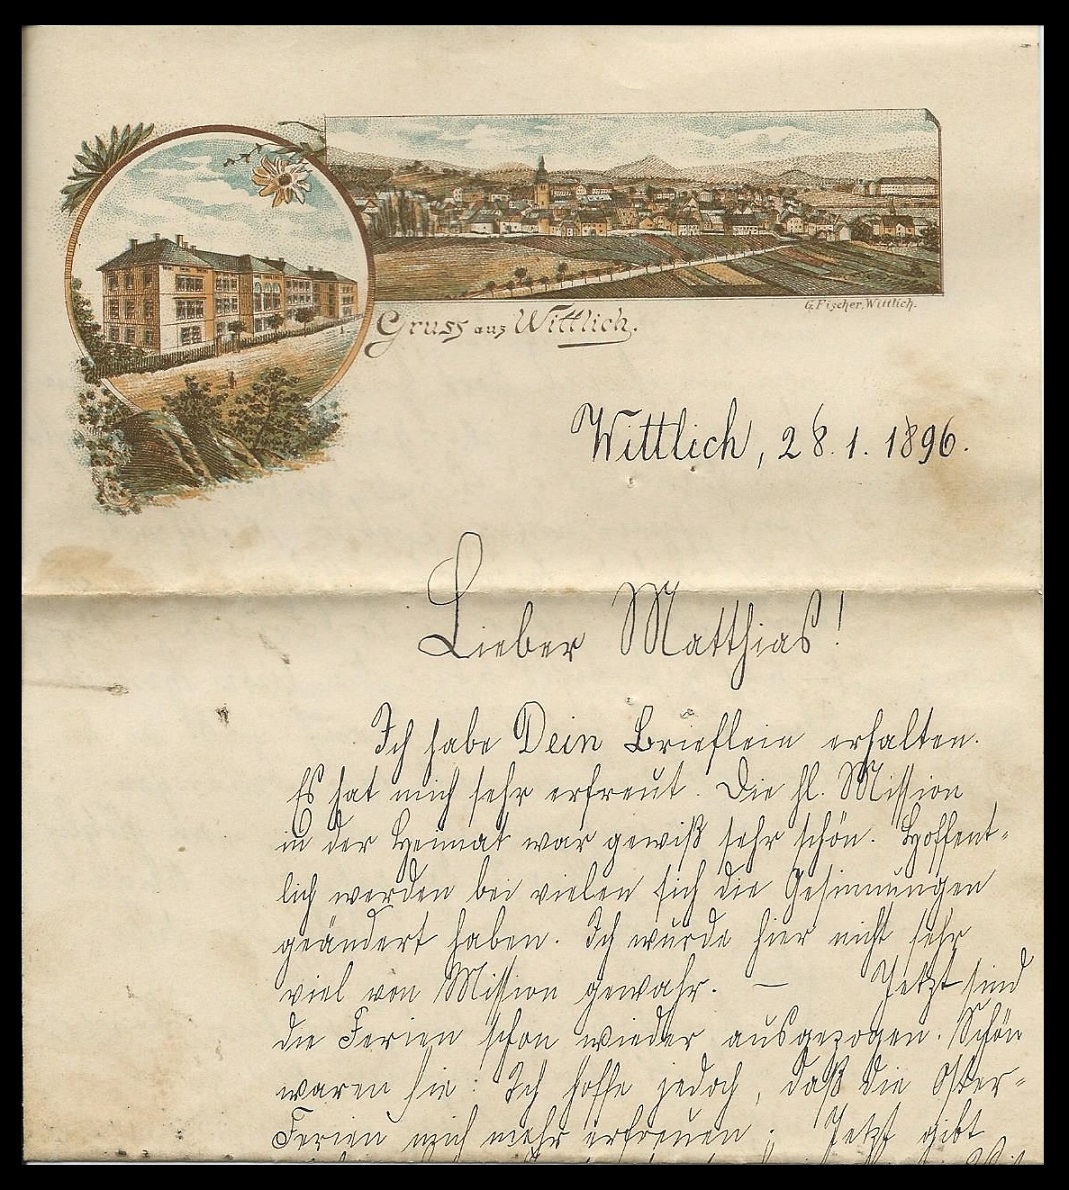 G. Fischer, Wittlich.
Gruss aus Wittlich.
Wittlich, 28.1.1896.
Lieber Matthias!
Ich habe Dein Brieflein erhalten.
Es hat mich sehr erfreut. Die hl. Mission
in der Heimat war gewiß sehr schön. Hoffent-
lich werden bei vielen sich die Gesinnungen
geändert haben. Ich wurde hier nicht sehr
viel von Mission gewahr. — Jetzt sind
die Ferien schon wieder ausgezogen. Schön
waren sie: Ich hoffe jedoch, daß die Oster-
Ferien mich mehr erfreuen; Jetzt gibt